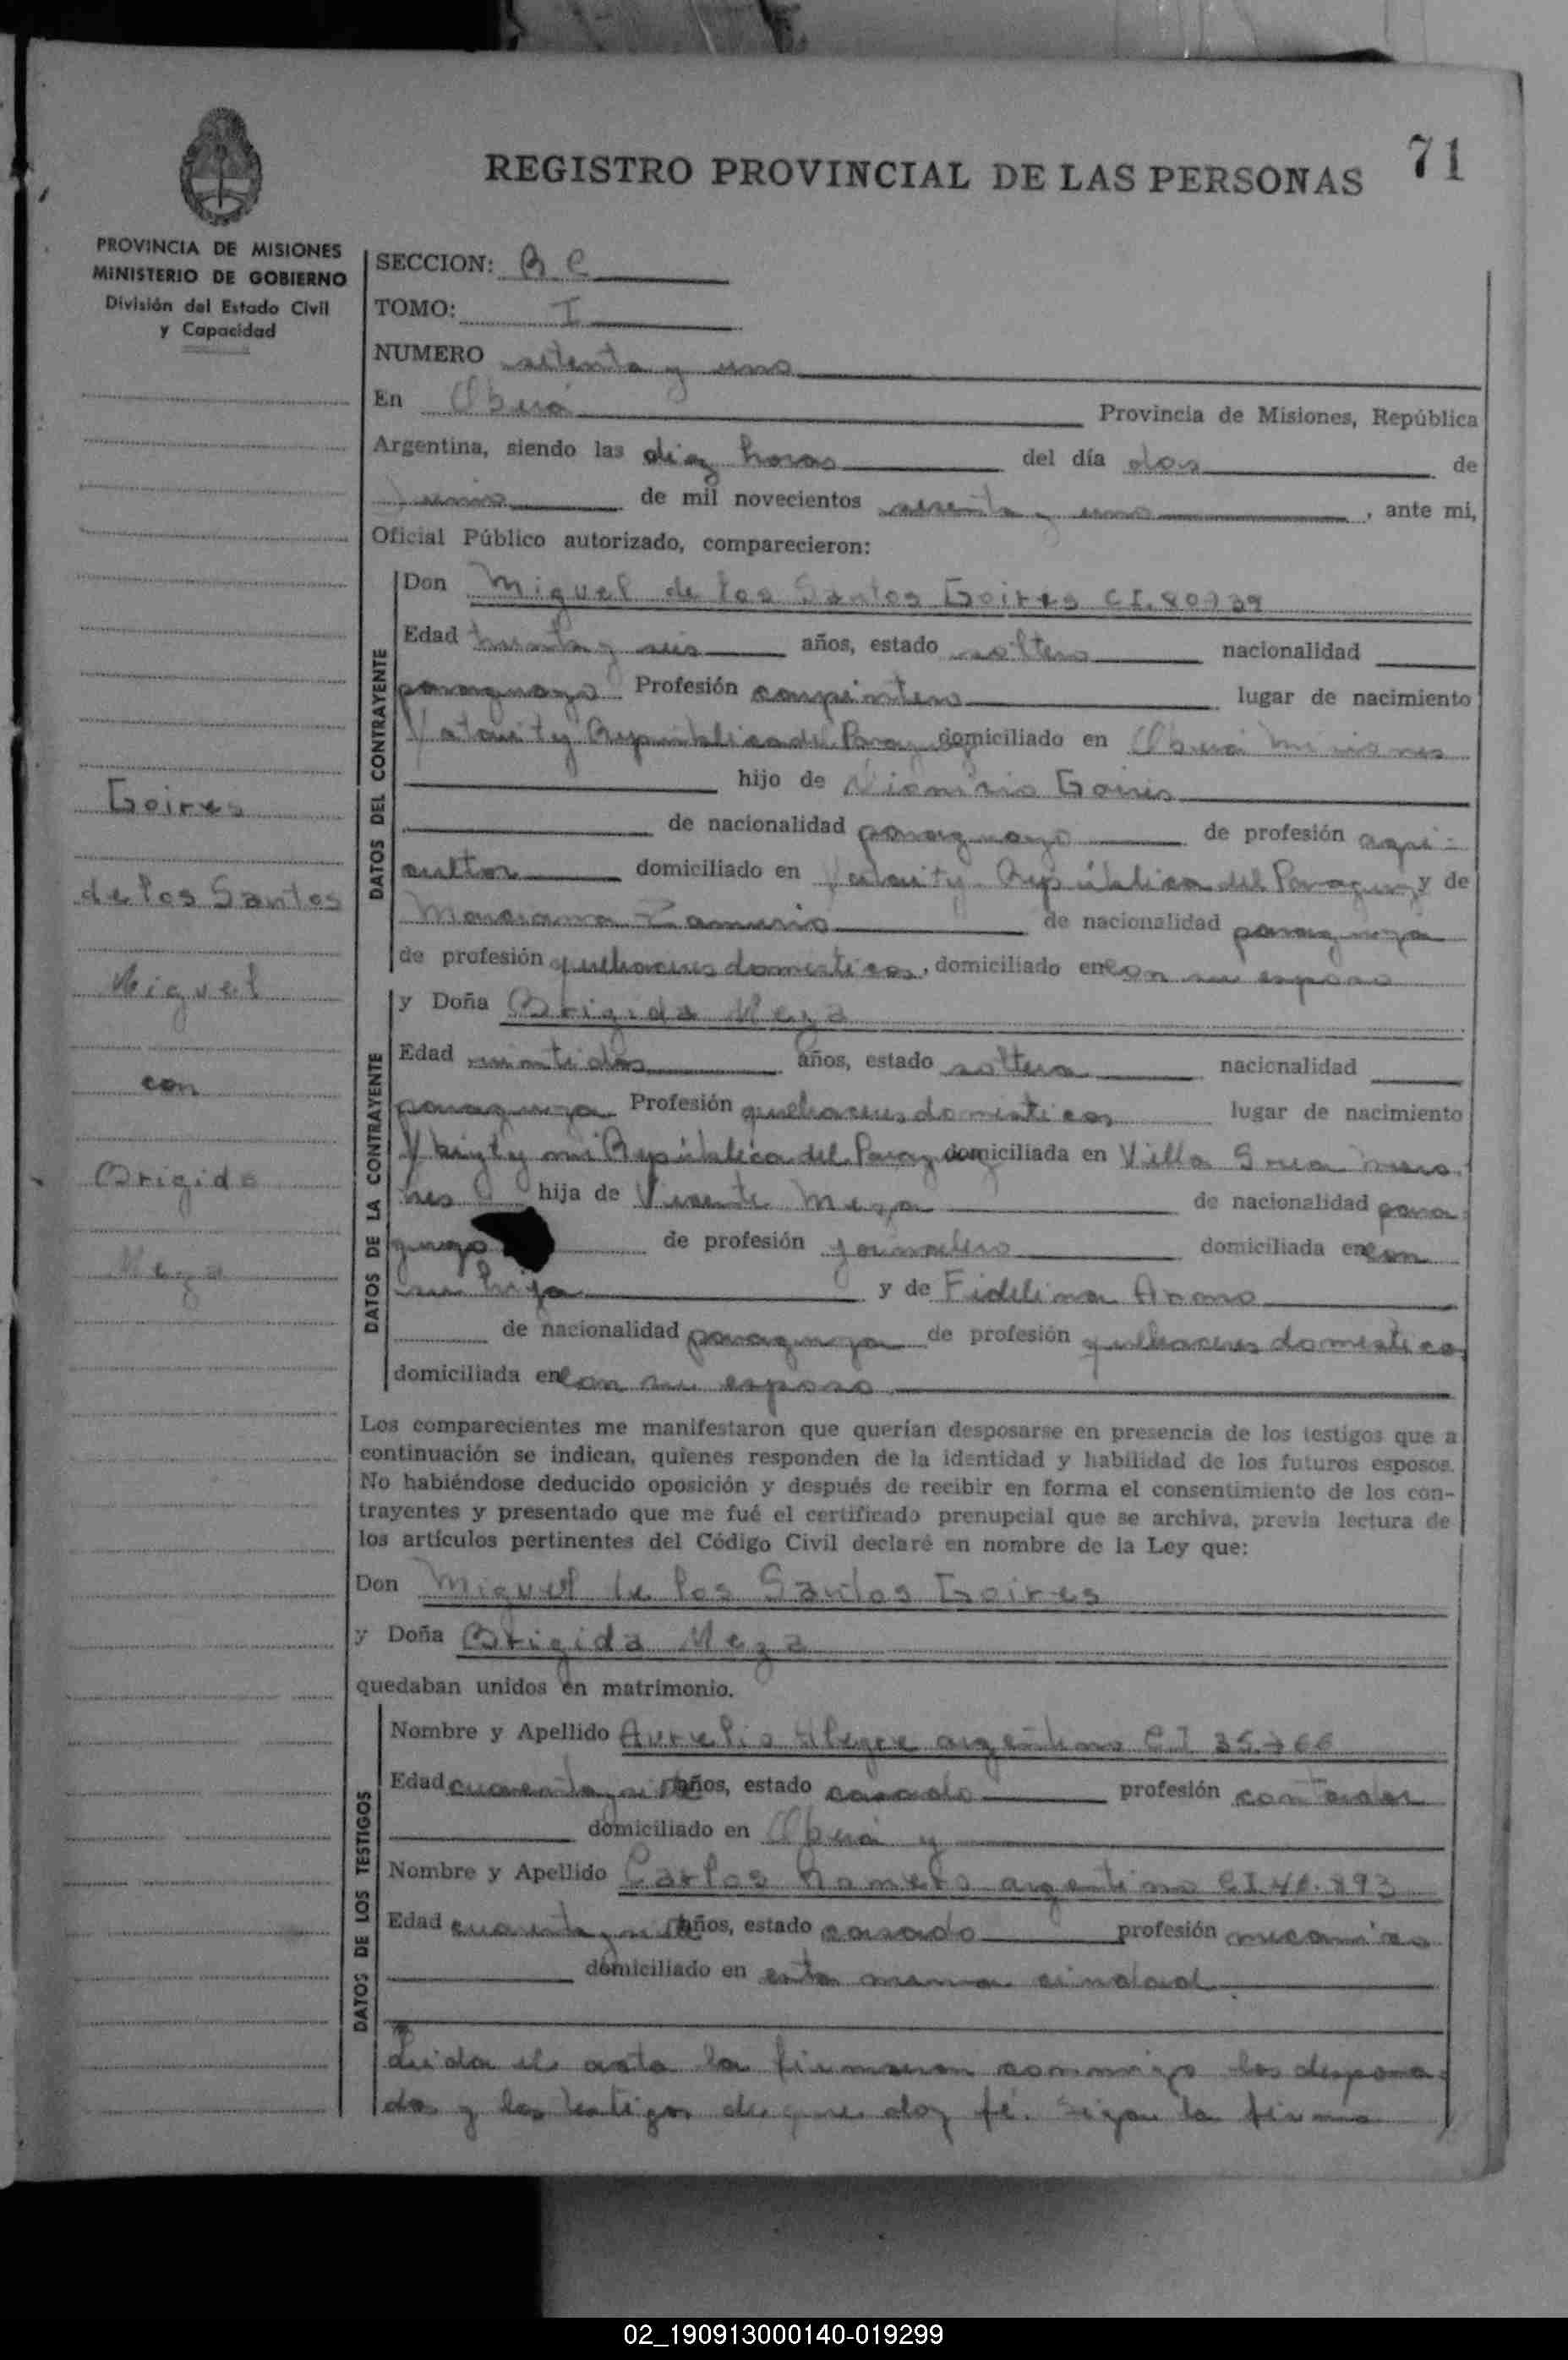 REGISTRO PROVINCIAL DE LAS PERSONAS
71
PROVINCIA DE MISIONES
MINISTERIO DE GOBIERNO
División del Estado Civil
y Capacidad
Goires
de los Santos
Miguel
con
Brigida
Meza
SECCION: B C
TOMO: I
NUMERO setenta y uno
En Oberá Provincia de Misiones, República
Argentina, siendo las diez horas del día dos de
Junio de mil novecientos sesenta y uno, ante mi,
Oficial Público autorizado, comparecieron:
DATOS DEL CONTRAYENTE
Don Miguel de los Santos Goires CI. 80939
Edad treinta y seis años, estado soltero nacionalidad
paraguayo Profesión carpintero lugar de nacimiento
Yataity República del Paraguay domiciliado en Oberá Misiones
hijo de Goires
de nacionalidad paraguayo de profesión agri-
cultor domiciliado en Yataity República del Paraguay y de
de nacionalidad paraguaya
de profesión quehaceres domesticos, domiciliado en con su esposo
DATOS DE LA CONTRAYENTE
y Doña Brigida Meza
Edad veintidos años, estado soltera nacionalidad
paraguaya Profesión quehaceres domesticos lugar de nacimiento
República del Paraguay domiciliada en Villa
hija de Vicente Meza de nacionalidad para-
guayo de profesión jornalero domiciliada en con
su hija y de Fidelina
de nacionalidad paraguaya de profesión quehaceres domestico
domiciliada en con su esposo
Los comparecientes me manifestaron que querían desposarse en presencia de los testigos que a
continuación se indican, quienes responden de la identidad y habilidad de los futuros esposos.
No habiéndose deducido oposición y después de recibir en forma el consentimiento de los con-
trayentes y presentado que me fué el certificado prenupcial que se archiva, previa lectura de
los artículos pertinentes del Código Civil declaré en nombre de la Ley que:
Don Miguel de los Santos Goires
y Doña Brigida Meza
quedaban unidos en matrimonio.
DATOS DE LOS TESTIGOS
Nombre y Apellido Aurelio Alegre argentino CI 35.766
Edad cuarenta y siete años, estado casado profesión contador
domiciliado en Oberá y
Nombre y Apellido Carlos Romero argentino CI 893
Edad cuarenta y siete años, estado casado profesión mecanico
domiciliado en esta misma ciudad
Leida el acta la firmaron conmigo los desposa-
dos y los testigos de que doy fé. Sigue la firma
02_190913000140-019299